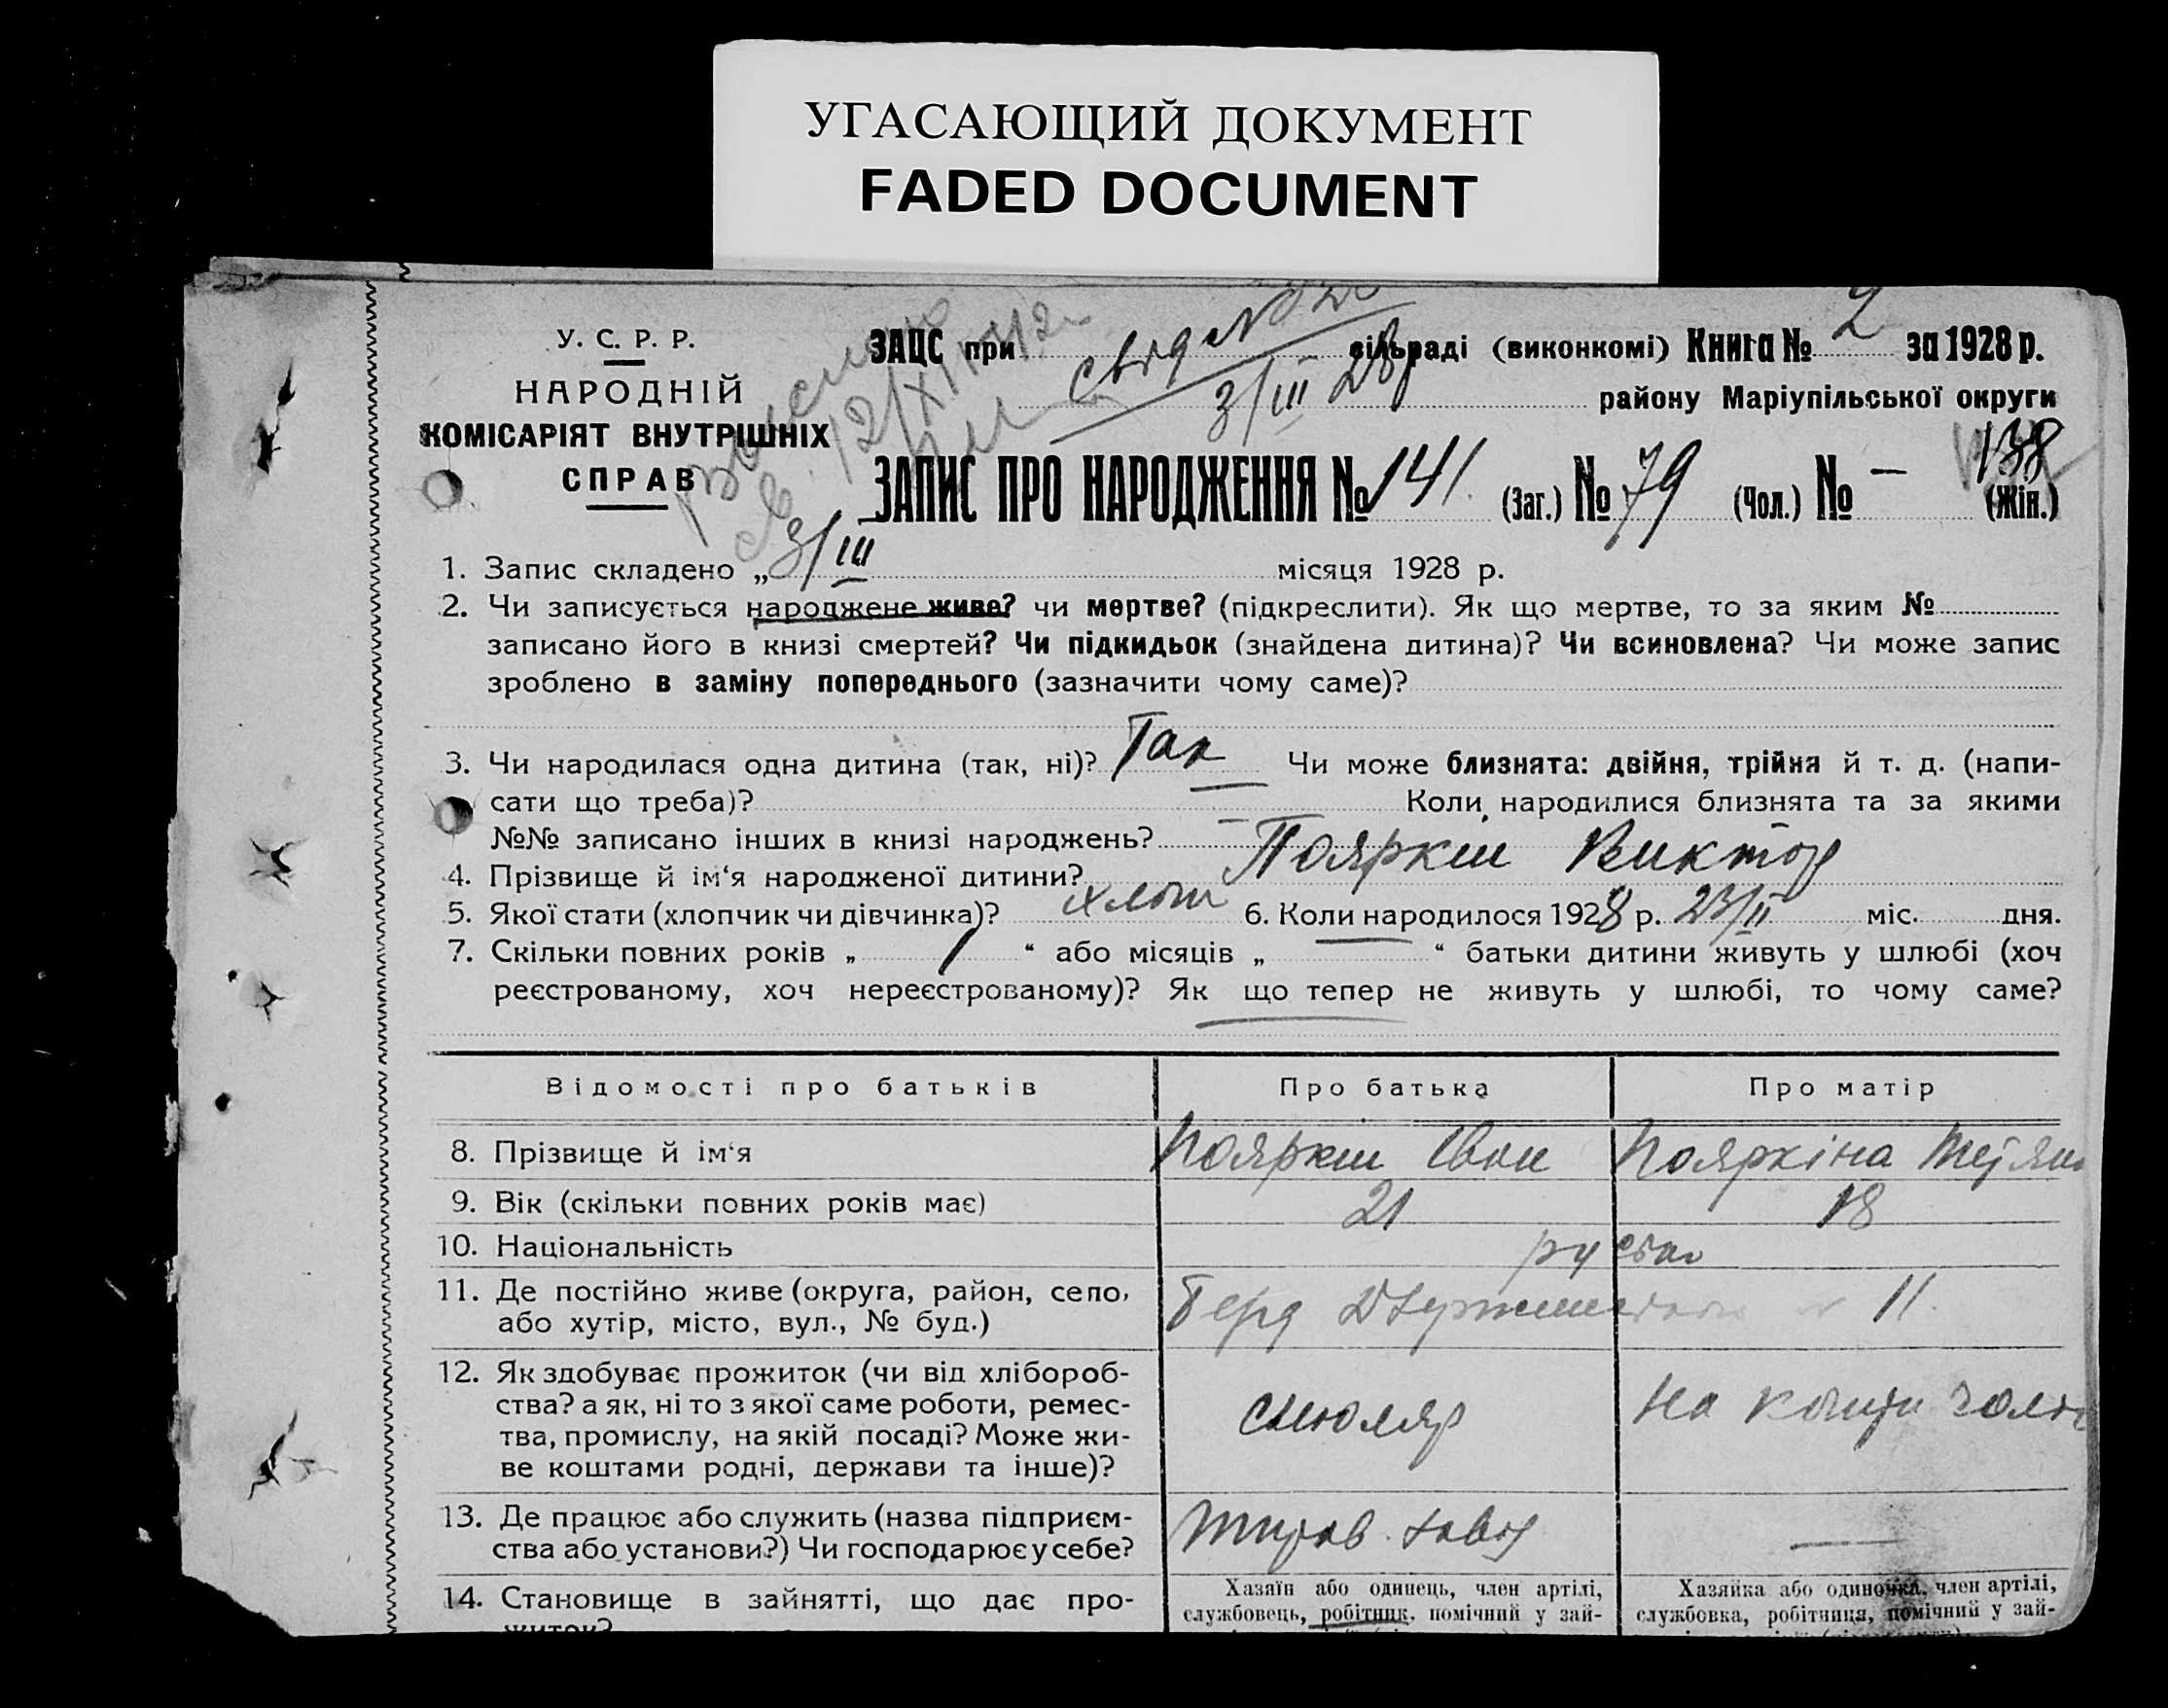 УГАСАЮЩИЙ ДОКУМЕНТ
FADED DOCUMENT
У. С. Р. Р.
НАРОДНІЙ
КОМІСАРІЯТ ВНУТРІШНІХ
СПРАВ
ЗАЦС при сільраді (виконкомі) Книга № 2 за 1928 р.
3/III 28
району Маріупільської округи
138
ЗАПИС ПРО НАРОДЖЕННЯ № 141 (Заг.) № 79 (Чол.) № — (Жін.)
1. Запис складено „ 3/III місяця 1928 р.
2. Чи записується народжене живе? чи мертве? (підкреслити). Як що мертве, то за яким №
записано його в книзі смертей? Чи підкидьок (знайдена дитина)? Чи всиновлена? Чи може запис
зроблено в заміну попереднього (зазначити чому саме)?
3. Чи народилася одна дитина (так, ні)? Так Чи може близнята: двійня, трійня й т. д. (напи-
сати що треба)? Коли народилися близнята та за якими
№№ записано інших в книзі народжень?
4. Прізвище й ім‘я народженої дитини? Пояркін Виктор
5. Якої стати (хлопчик чи дівчинка)? хлоп 6. Коли народилося 1928 р. 23/II міс. дня.
7. Скільки повних років „ 1 “ або місяців „ “ батьки дитини живуть у шлюбі (хоч
реєстрованому, хоч нереєстрованому)? Як що тепер не живуть у шлюбі, то чому саме?
Відомості про батьків Про батька Про матір
8. Прізвище й ім‘я Пояркін Іван Пояркіна
9. Вік (скільки повних років має) 21 18
10. Національність
11. Де постійно живе (округа, район, село,
або хутір, місто, вул., № буд.) 11.
12. Як здобуває прожиток (чи від хлібороб-
ства? а як, ні то з якої саме роботи, ремес-
тва, промислу, на якій посаді? Може жи-
ве коштами родні, держави та інше)?
столяр На кошти
13. Де працює або служить (назва підприєм-
ства або установи?) Чи господарює у себе?
завод —
14. Становище в зайнятті, що дає про-
житок?
Хазяїн або одинець, член артілі,
службовець, робітник, помічний у зай-
Хазяйка або одиночка, член артілі,
службовка, робітниця, помічний у зай-